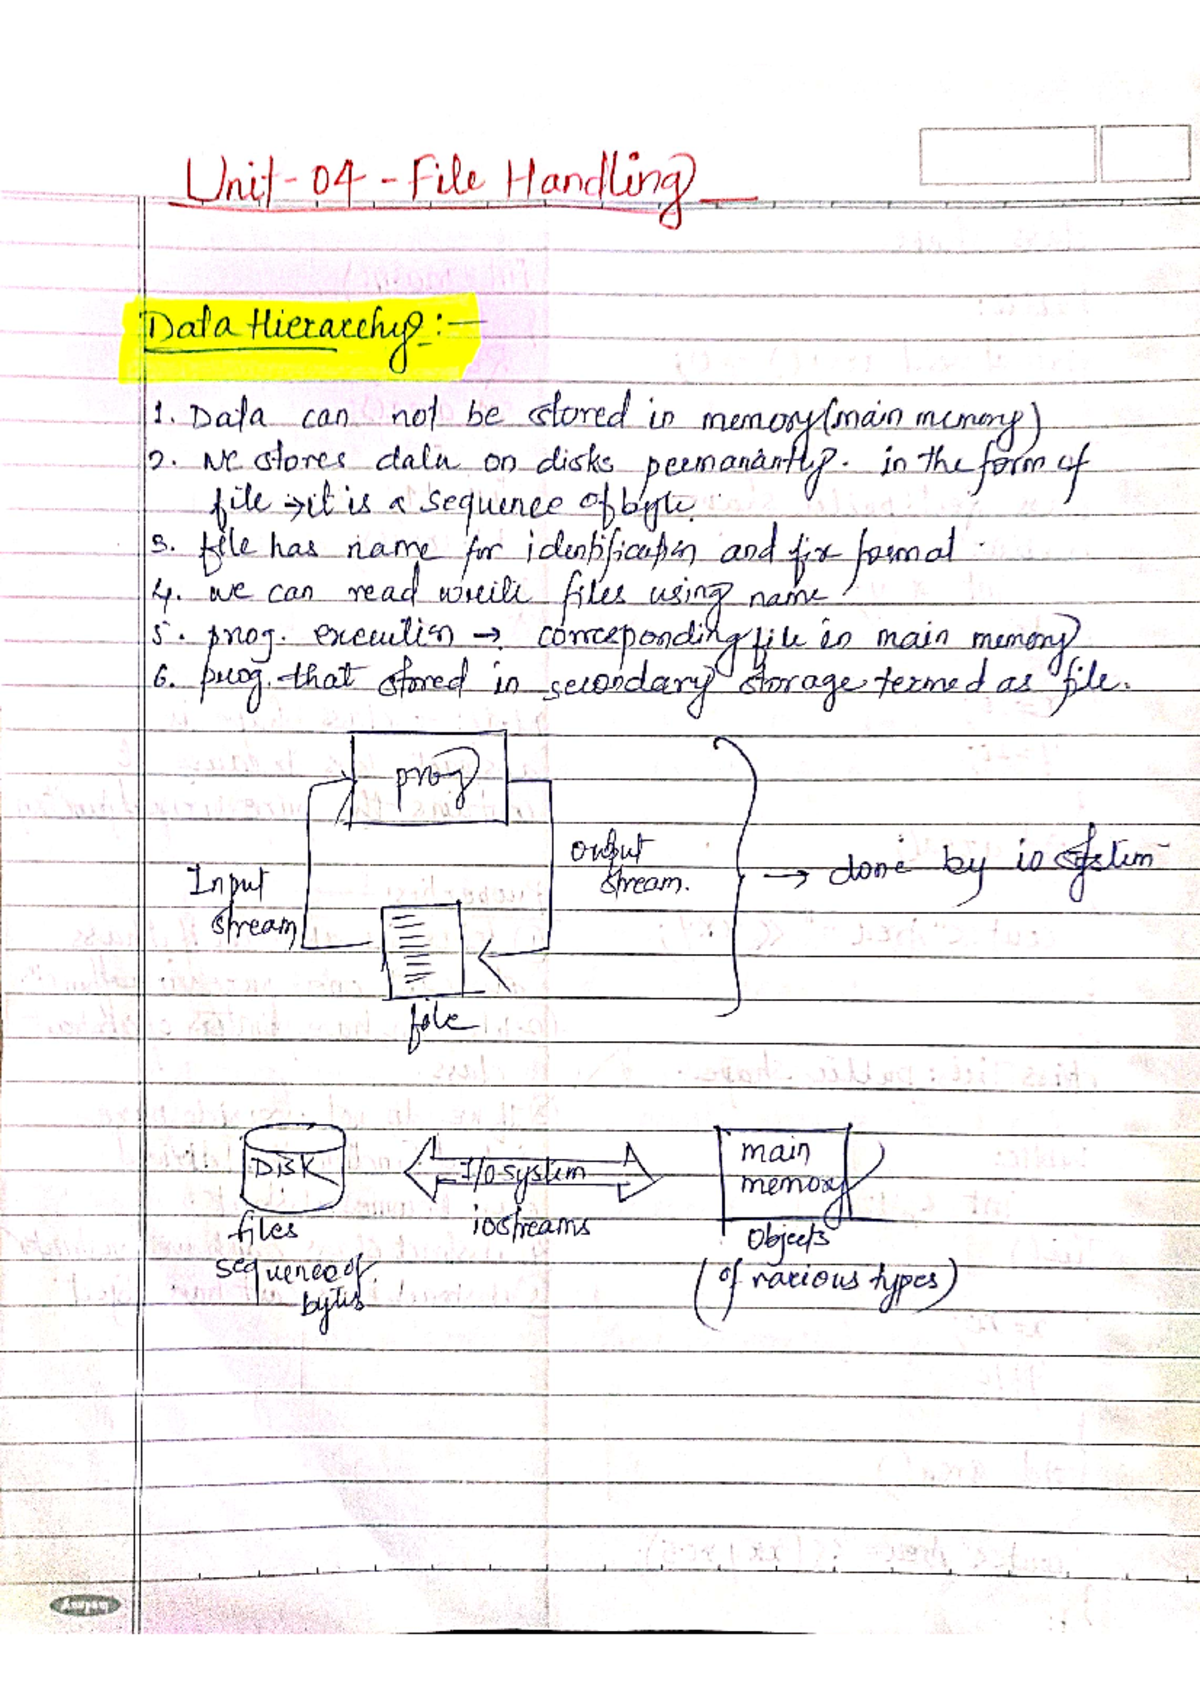 Unit-04-File Handling
Data Hierarchy:-
1. Data can not be stored in memory(main memory)
2. we stores data on disks permanantly. in the form of
file → it is a sequence of byte.
3. file has name for identification and fix format.
4. we can read write files using name
5. prog. execution → corresponding file in main memory
6. prog. that stored in secondary storage termed as file.
prog
Input
stream
output
stream.
→ done by io system
file
DISK
I/O system
main
memory
files
iostreams
Objects
sequence of
bytes
(of various types)